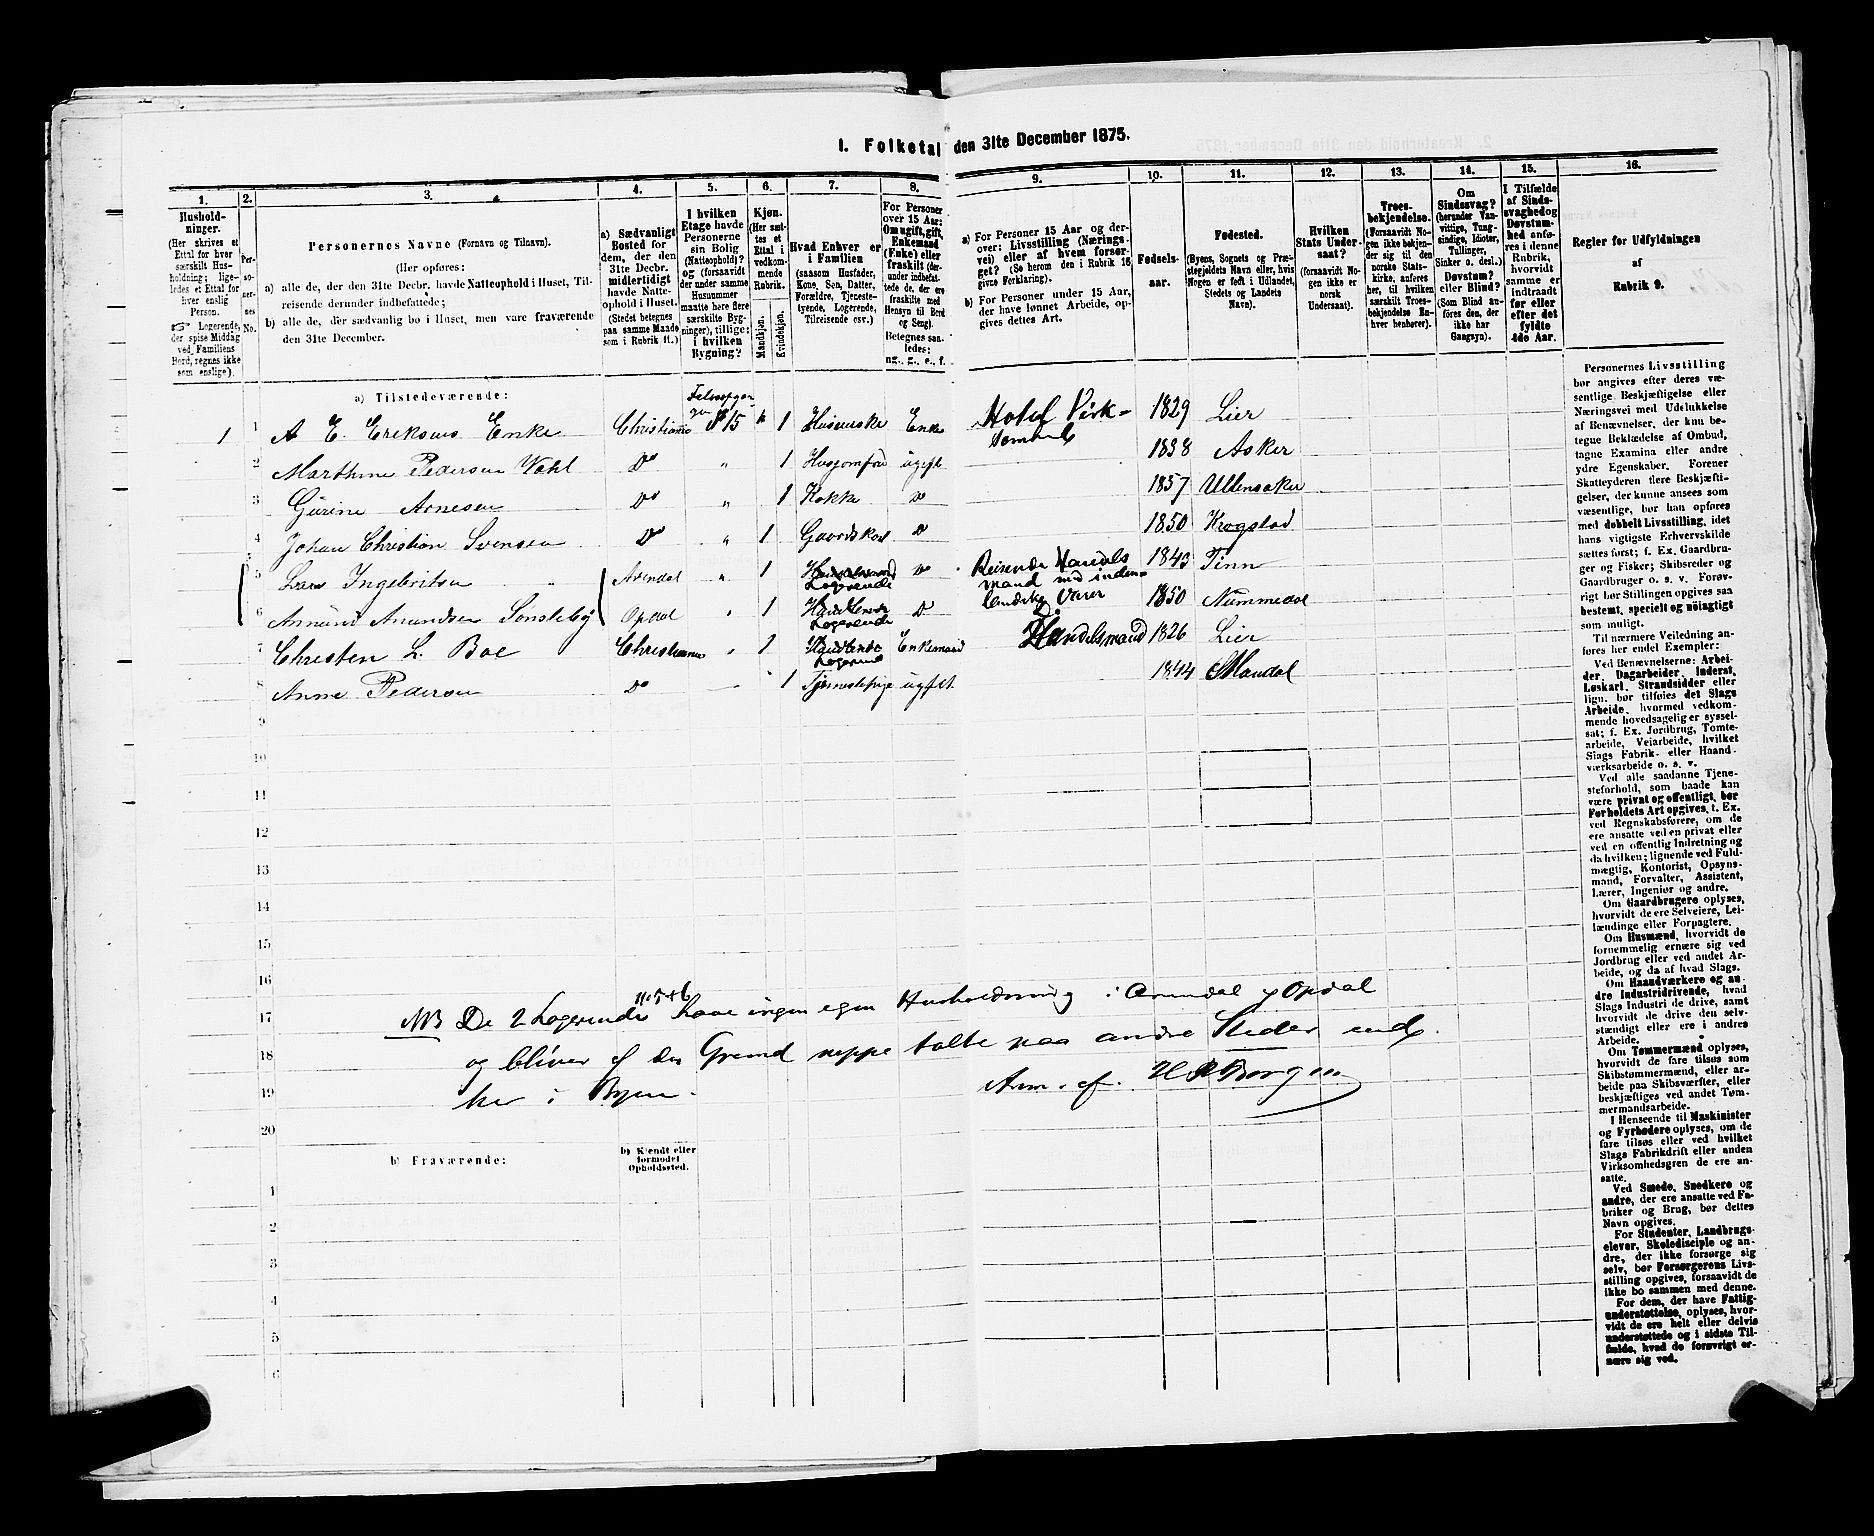 1. Folketal den 31te December 1875.
1. 2. 3. 4. 5. 6. 7. 8. 9. 10. 11. 12. 13. 14. 15. 16.
Husholdninger.
(Her skrives et
Ettal for hver
særskilt Husholdning;
ligeledes et Ettal for
hver enslig
Person.
Logerende,
der spise Middag
ved Familiens
Bord, regnes ikke
som enslige).
Personernes No.
Personernes Navne (Fornavn og Tilnavn).
(Her opføres:
a) alle de, der den 31te Decbr. havde Natteophold i Huset, Tilreisende derunder indbefattede;
b) alle de, der sædvanlig bo i Huset, men vare fraværende
den 31te December.
a) Sædvanligt
Bosted for
dem, der den
31te Decbr.
midlertidigt
havde Natteophold i Huset.
(Stedet betegnes
paa samme Maade
som i Rubrik 11.)
I hvilken
Etage havde
Personerne
sin Bolig
(Natteophold)?
og (forsaavidt
der under samme
Husnummer
maatte høre flere
særskilte Bygninger), tillige:
i hvilken
Bygning?
Kjøn.
(Her sættes et
Ettal i
vedkommende
Rubrik.
Mandkjøn.
Kvindekjøn.
Hvad Enhver er
i Familien
(saasom Husfader,
Kone, Søn, Datter,
Forældre, Tjenestetyende, Logerende,
Tilreisende osv.)
For Personer
over 15 Aar:
Om ugift, gift,
Enkemand
(Enke) eller
fraskilt (derunder indbefattede de, der ere
fraskilte med
Hensyn til Bord
og Seng).
Betegnes saaledes:
ug., g., e., f.
a) For Personer 15 Aar og derover: Livsstilling (Næringsvei) eller af hvem forsørget? (Se herom den i Rubrik 16
givne Forklaring).
b) For Personer under 15 Aar,
der have lønnet Arbeide, opgives dettes Art.
Fødselsaar.
Fødested.
(Byens, Sognets og Præstegjeldets Navn eller, hvis
Nogen er født i Udlandet,
Stedets og Landets
Navn).
Hvilken
Stats Undersaat?
(forsaavidt Nogen ikke er
norsk
Undersaat).
Troesbekjendelse.
(Forsaavidt Nogen ikke bekjender sig til den
norske Statskirke, anføres
her, til hvilken
særskilt Troesbekjendelse Enhver henhører).
Om
Sindssvag?
(herunder Vanvittige, Tungsindige, Idioter,
Tullinger,
Sinker o. desl.)
Døvstum?
eller Blind?
(Som Blind anføres den, der
ikke har
Gangsyn).
I Tilfælde
af Sindssvaghed og
Døvstumhed anføres i denne
Rubrik,
hvorvidt
samme er
indtraadt
før eller
efter det
fyldte
4de Aar.
Regler for Udfyldningen
af
Rubrik 9.
a) Tilstedeværende:
1 1 A E. Eriksens Enke Christiania 15 1 Enke Hotel Virksomhed 1829 Lier
2 Marthine Pedersen Wahl Do " 1 ugift 1838 Asker
3 Gurine Arnesen Do " 1 Kokke Do 1857 Ullensaker
4 Johan Christian Svensen Do " 1 Gaardskarl Do 1850 Krogstad
5 Lars Ingebritsen Arendal " 1 Logerende Do Reisende Handelsmand med indenlandske Varer 1843 Tinn
6 Amund Amundsen Sønsteby Opdal " 1 Logerende Do Do 1850 Nummedal
7 Christen L. Boe Christiania " 1 Logerende Enkemand Handelsmand 1826 Lier
8 Anne Pedersen Do 1 Tjenestepige ugift 1844 Mandal
9
10
11
12
13
14
15
16
17
18
19
20
NB De 2 Logerende No 5 + 6 have ingen egen Husholdning i Arendal & Opdal
og bliver af den Grund neppe talte paa andre Steder end
her i Byen. Anm. af. H Borgen
b) Fraværende:
b) Kjendt eller
formodet
Opholdssted.
1
2
3
4
5
6
Personernes Livsstilling
bør angives efter deres væsentlige Beskjæftigelse eller
Næringsvei med Udelukkelse
af Benævnelser, der kun betegne Beklædelse af Ombud,
tagne Examina eller andre
ydre Egenskaber. Forener
Skatteyderen flere Beskjæftigelser, der kunne ansees som
væsentlige, bør han opføres
med dobbelt Livsstilling, idet
hans vigtigste Erhvervskilde
sættes først; f. Ex. Gaardbruger og Fisker; Skibsreder og
Gaardbruger o. s. v. Forøvrigt bør Stillingen opgives saa
bestemt, specielt og nøiagtigt
som muligt.
Til nærmere Veiledning anføres her endel Exempler:
Ved Benævnelserne: Arbeider, Dagarbeider, Inderst,
Løskarl, Strandsidder eller
lign. bør tilføies det Slags
Arbeide, hvormed vedkommende hovedsagelig er sysselsat; f. Ex. Jordbrug, Tomtearbeide, Veiarbeide, hvilket
Slags Fabrik- eller Haandværksarbeide o. s. v.
Ved alle saadanne Tjenesteforhold, som baade kan
være privat og offentligt, bør
Forholdets Art opgives, t. Ex.
ved Regnskabsførere, om de
ere ansatte ved en privat eller
ved en offentlig Indretning og
da hvilken; lignende ved Fuldmægtig, Kontorist, Opsynsmand, Forvalter, Assistent,
Lærer, Ingeniør og andre.
Om Gaardbrugere oplyses,
hvorvidt de ere Selveiere, Leilændinge eller Forpagtere.
Om Husmænd, hvorvidt de
fornemmelig ernære sig ved
Jordbrug eller ved andet Arbeide, og da af hvad Slags.
Om Haandværkere og andre Industridrivende, hvad
Slags Industri de drive, samt
hvorvidt de drive den selvstændigt eller ere i andres
Arbeide.
Om Tømmermænd oplyses,
hvorvidt de fare tilsøs som
Skibstømmermænd, eller arbeide paa Skibsværfter, eller
beskjæftiges ved andet Tømmermandsarbeide.
I Henseende til Maskinister
og Fyrbødere oplyses, om de
fare tilsøs eller ved hvilket
Slags Fabrikdrift eller anden
Virksomhedsgren de ere ansatte.
Ved Smede, Snedkere og
andre, der ere ansatte ved Fabriker og Brug, bør dettes
Navn opgives.
For Studenter, Landbrugselever, Skoledisciple og andre, der ikke forsørge sig
selv, bør Forsørgerens Livsstilling opgives, forsaavidt de
ikke bo sammen med denne.
For dem, der have Fattigunderstøttelse, oplyses, hvorvidt de ere helt eller delvis
understøttede og i sidste Tilfælde, hvad de forøvrigt ernære sig ved.